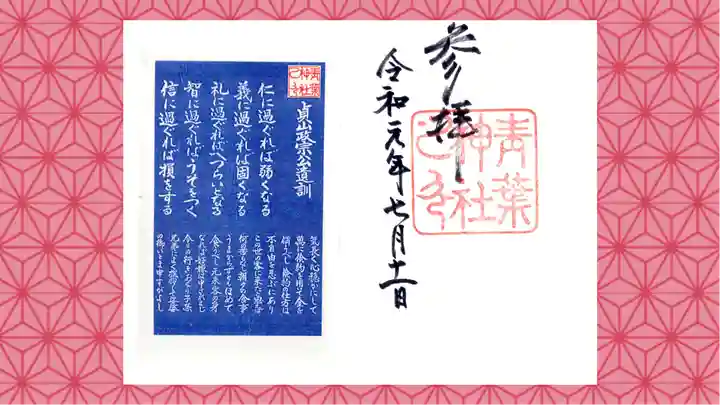 参拝
令和元年七月十一日
青葉
神社
之印
青葉
神社
之印
貞山政宗公遺訓
仁に過ぐれば弱くなる
義に過ぐれば固くなる
礼に過ぐればへつらいとなる
智に過ぐればうそをつく
信に過ぐれば損をする
気長く心穏かにして
萬に倹約を用いて金を
備うべし 倹約の仕方は
不自由を忍ぶにあり
この世の客に来たと思えば
何の苦もなし 朝夕の食事
うまからずともほめて
食うべし 元来客の身
なれば好嫌は申されまじ
今日の行きをおくり 子孫
兄弟によく挨拶して 娑婆
の御いとま申すがよし